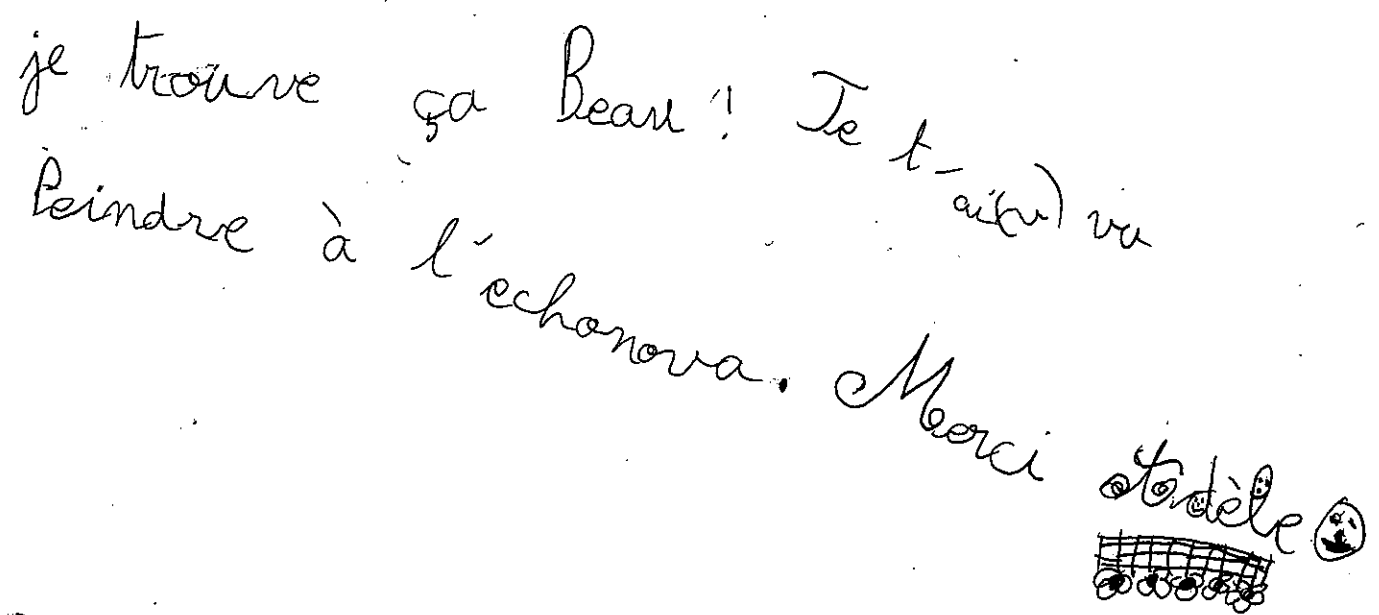 je trouve ça Beau ! Je t-ai(u) vu
Peindre à l'echonova. Merci Adèle